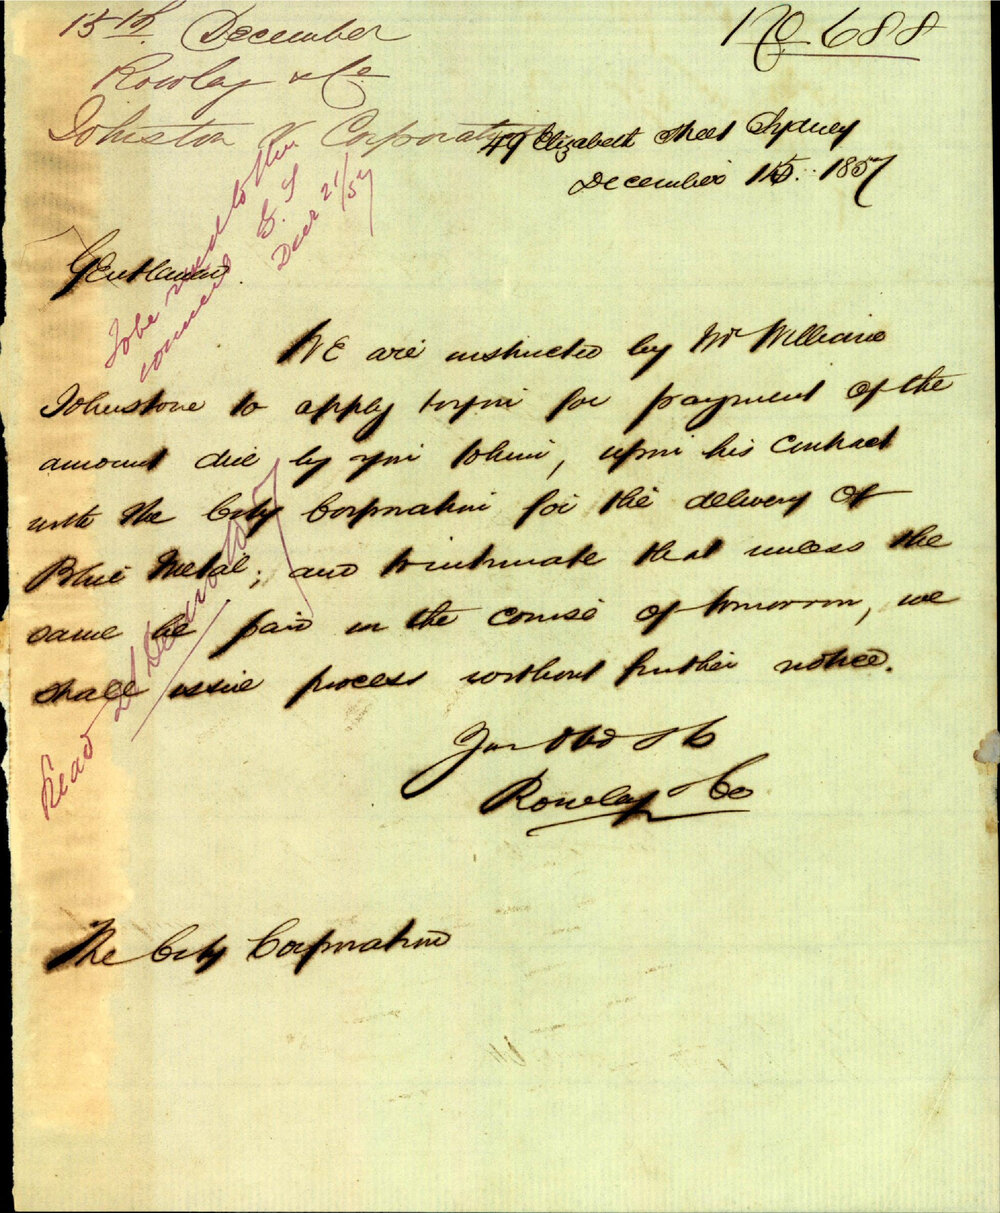 15th. December
No 688
Rowley & Co
Johnston v Corporation
49 Elizabeth Street Sydney
December 15th. 1857
To be read to the
council G. S
Decr 21/57
Gentlemen.
WE are instructed by Mr William
Johnstone to apply to you for payment of the
amount due by you to him, upon his Contract
with the City Corporation for the delivery of
Blue Metal; and to intimate that unless the
same be paid in the course of tomorrow, we
shall issue process without further notice.
Read 21 Dec
Your Obd S
Rowley & Co
The City Corporation